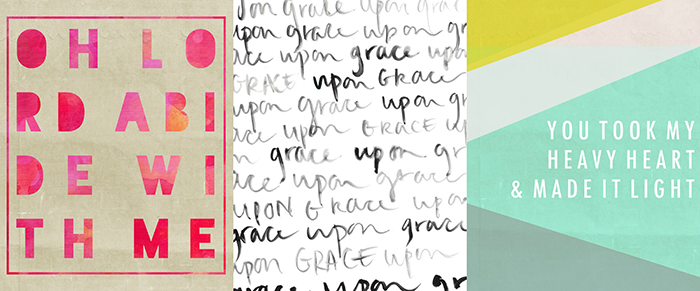 OH LO
RD ABI
DE WI
TH ME
upon grace upon
upon grace upon gr
grace upon grace upon
GRACE upon GRACE
upon grace upon gr
upon GRACE
grace upon
grace upon grace
UPON GRACE upon
grace upon grace
upon GRACE upon
grace upon gr
YOU TOOK MY
HEAVY HEART
& MADE IT LIGHT